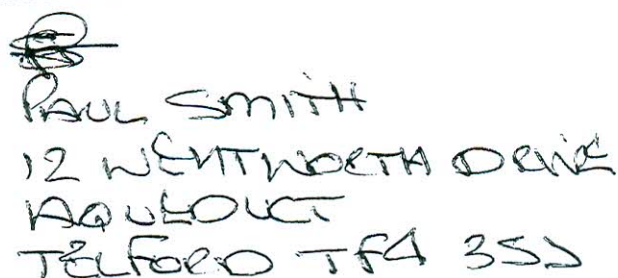 PAUL SMITH
12 WENTWORTH DRIVE
AQUEDUCT
TELFORD TF4 3SJ